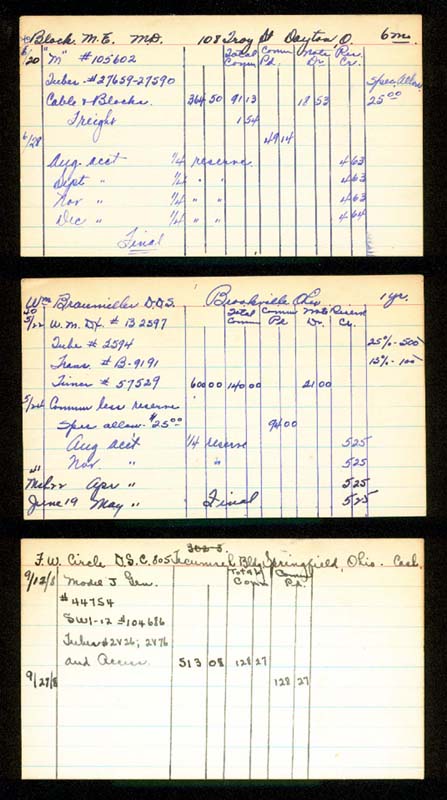 Block. M. E. MD. 108 Troy St Dayton, O. 6 mo.
Total Comm Comm Pd. Note Dr. Res. Cr.
6/20 "M" #105602
Tubes - #27659-27590 Spec. Allow
Cable & Blocks. 364 50 91 13 18 53 25 00
Freight 1 54
6/28 49 14
Aug. acct 1/4 reserve 4 63
Sept " 1/4 " " 4 63
Nov " 1/4 " " 4 63
Dec " 1/4 " " 4 64
Final
Wm Braumiller D.D.S. Brookville Ohio 1 yr.
Total Comm Comm Pd Note Dr. Reserve Cr.
30
5/22 W. M. DX. # B 2597
Tube # 2594 25% - 500
Trans. # B-9191 15% - 100
Timer # 57529 600 00 140 00 21 00
5/24 Comm less reserve
Spec allow. $25 00 94 00
Aug acct 1/4 reserve 5 25
Nov. " " 5 25
31
Mch 22 Apr " 5 25
June 19 May " Final 5 25
302-3
F. W. Circle D.S.C. 805 Tecumseh Bldg Springfield, Ohio. Cash
Total Comm Comm Pd.
9/12/8 Model J Gen.
#44754
SW1-12 #104686
Tubes #2V26; 2V76
and Access. 513 08 128 27
9/27/8 128 27